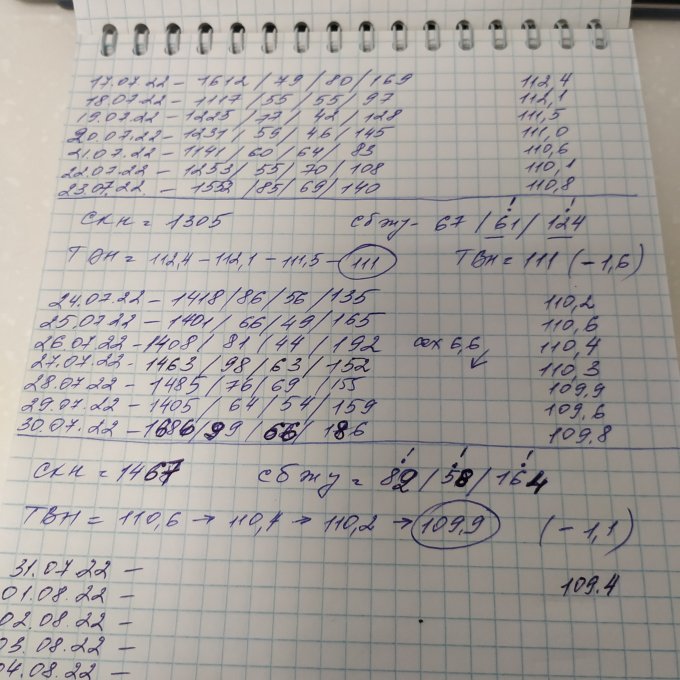 17.07.22 - 1612 / 79 / 80 / 169 112,4
18.07.22 - 1117 / 55 / 55 / 97 112,1
19.07.22 - 1225 / 77 / 42 / 128 111,5
20.07.22 - 1231 / 59 / 46 / 145 111,0
21.07.22 - 1141 / 60 / 64 / 83 110,6
22.07.22 - 1253 / 55 / 70 / 108 110,1
23.07.22 - 1552 / 85 / 69 / 140 110,8
СКН = 1305 СБЖУ - 67 / 61 / 124
ТВН = 112,4 - 112,1 - 111,5 - 111 ТВН = 111 (-1,6)
24.07.22 - 1418 / 86 / 56 / 135 110,2
25.07.22 - 1401 / 66 / 49 / 165 110,6
26.07.22 - 1408 / 81 / 44 / 192 сах 6,6 110,4
27.07.22 - 1463 / 98 / 63 / 152 110,3
28.07.22 - 1485 / 76 / 69 / 155 109,9
29.07.22 - 1405 / 64 / 54 / 159 109,6
30.07.22 - 1686 / 99 / 66 / 186 109,8
СКН = 1467 СБЖУ = 82 / 58 / 164
ТВН = 110,6 → 110,4 → 110,2 → 109,9 (-1,1)
31.07.22 - 109.4
01.08.22 -
02.08.22 -
03.08.22 -
04.08.22 -